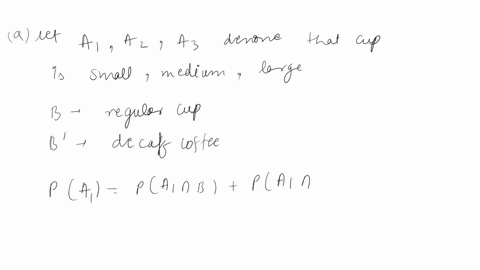 (a) let A1, A2, A3 denone that cup
is small, medium, large
B → regular cup
B' → decaff coffee
P(A1) = P(A1 ∩ B) + P(A1 ∩